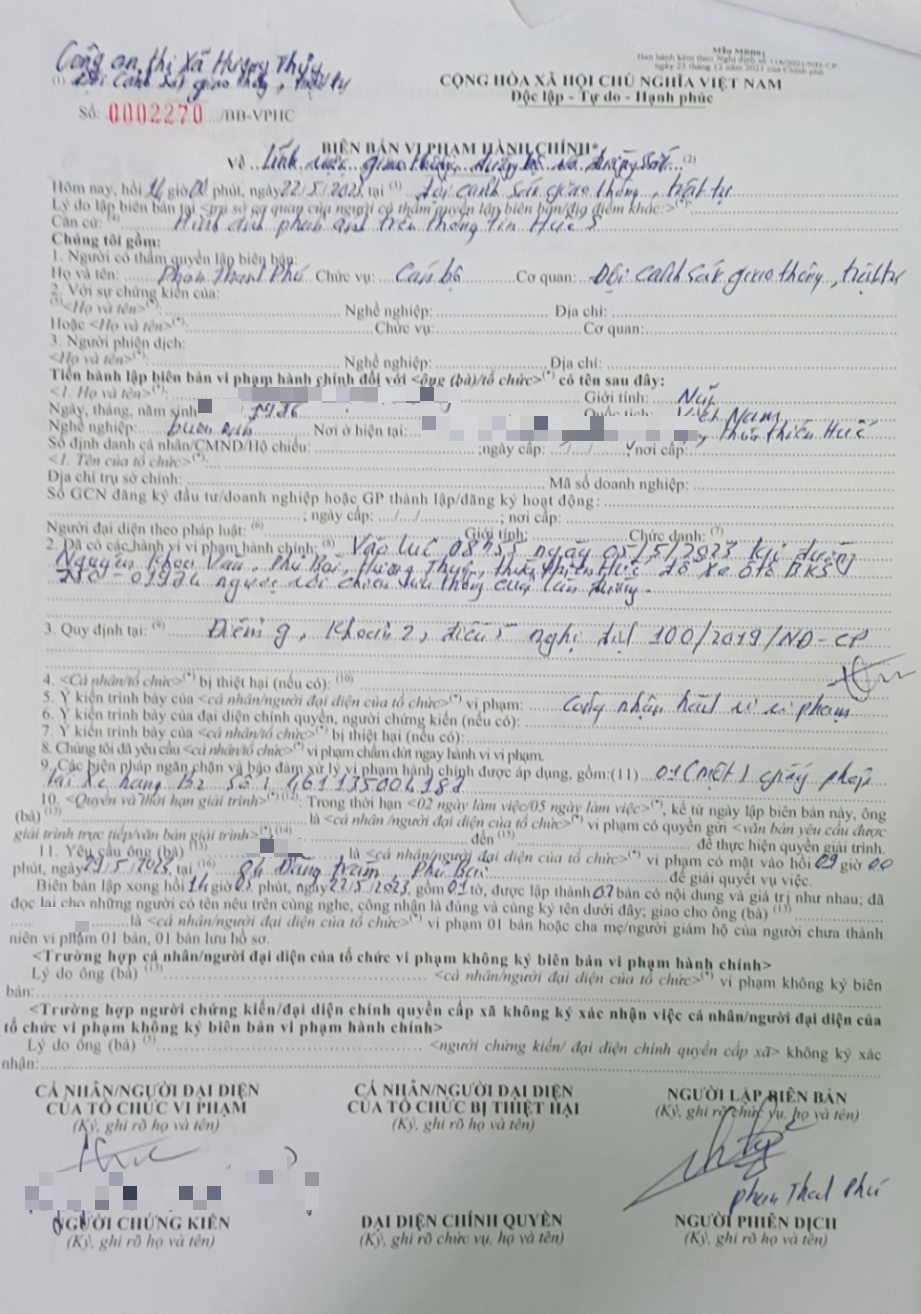 Công an thị xã Hương Thủy
(1) Đội Cảnh sát giao thông, trật tự
Ban hành kèm theo Nghị định số 118/2021/NĐ-CP
ngày 23 tháng 12 năm 2021 của Chính phủ
CỘNG HÒA XÃ HỘI CHỦ NGHĨA VIỆT NAM
Độc lập - Tự do - Hạnh phúc
Số: 0002270 /BB-VPHC
BIÊN BẢN VI PHẠM HÀNH CHÍNH*
Về lĩnh vực giao thông đường bộ và đường sắt (2)
Hôm nay, hồi giờ 00 phút, ngày 22/5/2023 tại (3) đội cảnh sát giao thông, trật tự
Lý do lập biên bản tại <trụ sở cơ quan của người có thẩm quyền lập biên bản/địa điểm khác>(*):
Căn cứ: (4) Hình ảnh phản ánh trên thông tin Huế S
Chúng tôi gồm:
1. Người có thẩm quyền lập biên bản:
Họ và tên: Phan Thanh Phú Chức vụ: Cán bộ Cơ quan: Đội cảnh sát giao thông, trật tự
2. Với sự chứng kiến của:
(5)<Họ và tên>(*): Nghề nghiệp: Địa chỉ:
Hoặc <Họ và tên>(*): Chức vụ: Cơ quan:
3. Người phiên dịch:
<Họ và tên>(*): Nghề nghiệp: Địa chỉ:
Tiến hành lập biên bản vi phạm hành chính đối với <ông (bà)/tổ chức>(*) có tên sau đây:
<1. Họ và tên>(*): Giới tính: Nữ
Ngày, tháng, năm sinh Quốc tịch: Việt Nam
Nghề nghiệp: buôn bán Nơi ở hiện tại: thừa thiên Huế
Số định danh cá nhân/CMND/Hộ chiếu: ;ngày cấp: .../.../...; nơi cấp:
<1. Tên của tổ chức>(*):
Địa chỉ trụ sở chính: Mã số doanh nghiệp:
Số GCN đăng ký đầu tư/doanh nghiệp hoặc GP thành lập/đăng ký hoạt động:
; ngày cấp: .../.../...; nơi cấp:
Người đại diện theo pháp luật: (6) Giới tính: Chức danh: (7)
2. Đã có các hành vi vi phạm hành chính: (8) Vào lúc 08h55 ngày 05/5/2023 tại đường
Nguyễn Khoa Văn, Phú Bài, Hương Thủy, thừa thiên Huế đỗ xe ôtô BKS
ngược với chiều lưu thông của làn đường.
3. Quy định tại: (9) Điểm g, Khoản 2, điều 5 nghị định 100/2019/NĐ-CP
4. <Cá nhân/tổ chức>(*) bị thiệt hại (nếu có): (10)
5. Ý kiến trình bày của <cá nhân/người đại diện của tổ chức>(*) vi phạm: Công nhận hành vi vi phạm
6. Ý kiến trình bày của đại diện chính quyền, người chứng kiến (nếu có):
7. Ý kiến trình bày của <cá nhân/tổ chức>(*) bị thiệt hại (nếu có):
8. Chúng tôi đã yêu cầu <cá nhân/tổ chức>(*) vi phạm chấm dứt ngay hành vi vi phạm.
9. Các biện pháp ngăn chặn và bảo đảm xử lý vi phạm hành chính được áp dụng, gồm:(11) 01 (một) giấy phép
lái xe hạng B2 số
10. <Quyền và thời hạn giải trình>(*)(12): Trong thời hạn <02 ngày làm việc/05 ngày làm việc>(*), kể từ ngày lập biên bản này, ông
(bà) (13) là <cá nhân /người đại diện của tổ chức>(*) vi phạm có quyền gửi <văn bản yêu cầu được
giải trình trực tiếp/văn bản giải trình>(*)(14) đến (15) để thực hiện quyền giải trình.
11. Yêu cầu ông (bà) (13) là <cá nhân/người đại diện của tổ chức>(*) vi phạm có mặt vào hồi 09 giờ 00
phút, ngày 29/5/2023, tại (16) Phú Bài để giải quyết vụ việc.
Biên bản lập xong hồi giờ phút, ngày 22/5/2023, gồm 01 tờ, được lập thành 02 bản có nội dung và giá trị như nhau; đã
đọc lại cho những người có tên nêu trên cùng nghe, công nhận là đúng và cùng ký tên dưới đây; giao cho ông (bà) (13)
là <cá nhân/người đại diện của tổ chức>(*) vi phạm 01 bản hoặc cha mẹ/người giám hộ của người chưa thành
niên vi phạm 01 bản, 01 bản lưu hồ sơ.
<Trường hợp cá nhân/người đại diện của tổ chức vi phạm không ký biên bản vi phạm hành chính>
Lý do ông (bà) (13) <cá nhân/người đại diện của tổ chức>(*) vi phạm không ký biên
bản:
<Trường hợp người chứng kiến/đại diện chính quyền cấp xã không ký xác nhận việc cá nhân/người đại diện của
tổ chức vi phạm không ký biên bản vi phạm hành chính>
Lý do ông (bà) (5) <người chứng kiến/ đại diện chính quyền cấp xã> không ký xác
nhận:
CÁ NHÂN/NGƯỜI ĐẠI DIỆN
CỦA TỔ CHỨC VI PHẠM
(Ký, ghi rõ họ và tên)
CÁ NHÂN/NGƯỜI ĐẠI DIỆN
CỦA TỔ CHỨC BỊ THIỆT HẠI
(Ký, ghi rõ họ và tên)
NGƯỜI LẬP BIÊN BẢN
(Ký, ghi rõ chức vụ, họ và tên)
Phan Thanh Phú
NGƯỜI CHỨNG KIẾN
(Ký, ghi rõ họ và tên)
ĐẠI DIỆN CHÍNH QUYỀN
(Ký, ghi rõ chức vụ, họ và tên)
NGƯỜI PHIÊN DỊCH
(Ký, ghi rõ họ và tên)